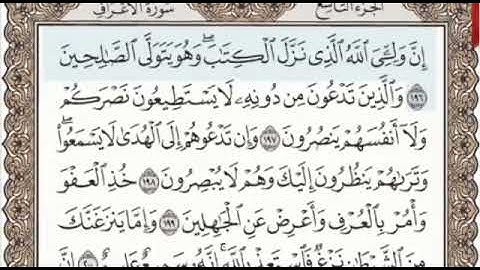 سورة الأعراف الجزء التاسع
إِنَّ وَلِـِّۧيَ ٱللَّهُ ٱلَّذِي نَزَّلَ ٱلۡكِتَٰبَۖ وَهُوَ يَتَوَلَّى ٱلصَّٰلِحِينَ
١٩٦ وَٱلَّذِينَ تَدۡعُونَ مِن دُونِهِۦ لَا يَسۡتَطِيعُونَ نَصۡرَكُمۡ
وَلَآ أَنفُسَهُمۡ يَنصُرُونَ ١٩٧ وَإِن تَدۡعُوهُمۡ إِلَى ٱلۡهُدَىٰ لَا يَسۡمَعُواْۖ
وَتَرَىٰهُمۡ يَنظُرُونَ إِلَيۡكَ وَهُمۡ لَا يُبۡصِرُونَ ١٩٨ خُذِ ٱلۡعَفۡوَ
وَأۡمُرۡ بِٱلۡعُرۡفِ وَأَعۡرِضۡ عَنِ ٱلۡجَٰهِلِينَ ١٩٩ وَإِمَّا يَنزَغَنَّكَ
مِنَ ٱلشَّيۡطَٰنِ نَزۡغٞ فَٱسۡتَعِذۡ بِٱللَّهِۚ إِنَّهُۥ سَمِيعٌ عَلِيمٌ ٢٠٠ إِنَّ